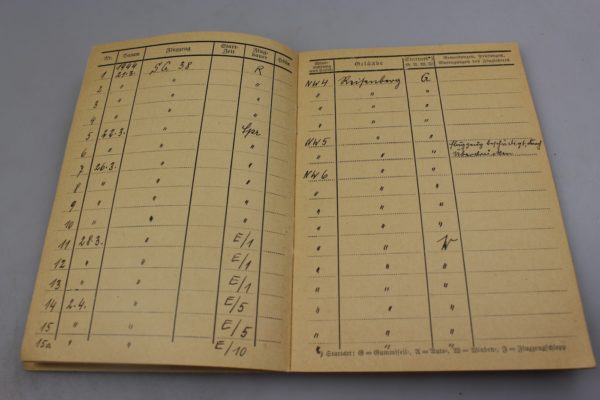 Nr. Datum Flugzeug Start-Zeit Flug-dauer Höhe
1 1944 21.3. SG 38 R
2 " " "
3 " " "
4 " " "
5 22.3. " Spr
6 " " "
7 26.3. "
8 " "
9 " "
10 " "
11 28.3. " E/1
12 " " E/1
13 " " E/1
14 2.4. " E/5
15 " " E/5
15a " " E/10
Gelände Startart*) Bemerkungen, Prüfungen,
NW4 G.
" " "
" " "
" " "
NW5 " " Flugzeug beschädigt, durch
" " "
NW6 " "
" " "
" " "
" " "
" "
" " "
" " "
" " "
" " "
" " "
*) Startart: G = Gummiseil-, A = Auto-, W = Winden-, F = Flugzeugschlepp